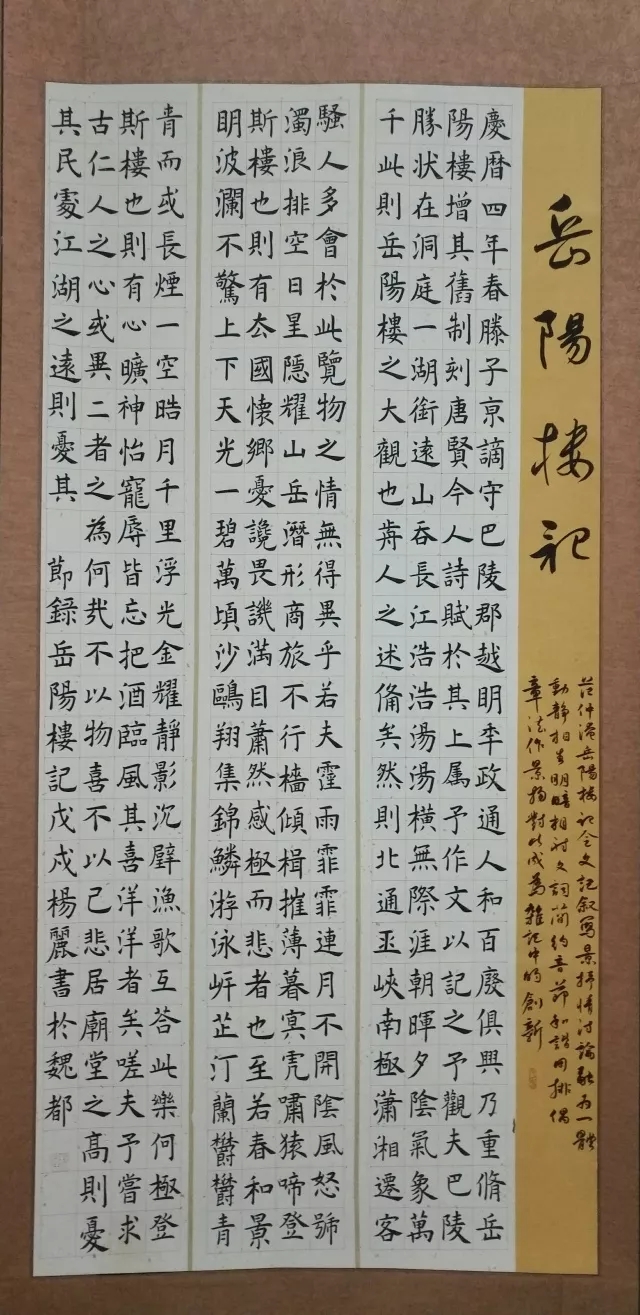 岳陽楼記
范仲淹岳陽楼記全文記叙寫景抒情討論融为一體
動靜相生明暗相衬文詞简约音节和諧用排偶
章法作景物對比成為雜記中的創新
慶曆四年春滕子京謫守巴陵郡越明年政通人和百廢俱興乃重脩岳
陽樓增其舊制刻唐賢今人詩賦於其上属予作文以記之予觀夫巴陵
勝状在洞庭一湖銜遠山吞長江浩浩湯湯橫無際涯朝暉夕陰氣象萬
千此則岳陽樓之大觀也歬人之述俻矣然則北通巫峽南極瀟湘遷客
騷人多會於此覽物之情無得異乎若夫霪雨霏霏連月不開陰風怒號
濁浪排空日星隱耀山岳潛形商旅不行檣傾楫摧薄暮冥虎嘯猿啼登
斯樓也則有去國懷鄉憂讒畏譏滿目蕭然感極而悲者也至若春和景
明波瀾不驚上下天光一碧萬頃沙鷗翔集錦鱗游泳岸芷汀蘭欝欝青
青而或長煙一空皓月千里浮光金耀靜影沉璧漁歌互答此樂何極登
斯樓也則有心曠神怡寵辱皆忘把酒臨風其喜洋洋者矣嗟夫予嘗求
古仁人之心或異二者之為何哉不以物喜不以己悲居廟堂之高則憂
其民處江湖之遠則憂其
節錄岳陽樓記戊戌楊麗書於魏都